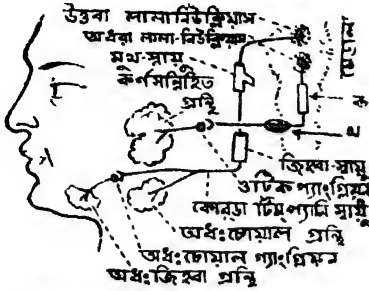 উত্তবা লালা নিউক্লিয়াস
অধরা লালা-নিউক্লিয়াস
মুখ-স্নায়ু
কর্ণসন্নিহিত
গ্রন্থি
ক
খ
জিহ্বা-স্নায়ু
ওটিক গ্যাংগ্লিয়ন
কোরডা টিম্‌প্যানি স্নায়ু
অধঃচোয়াল গ্রন্থি
অধঃচোয়াল গ্যাংগ্লিয়ন
অধঃজিহ্বা গ্রন্থি